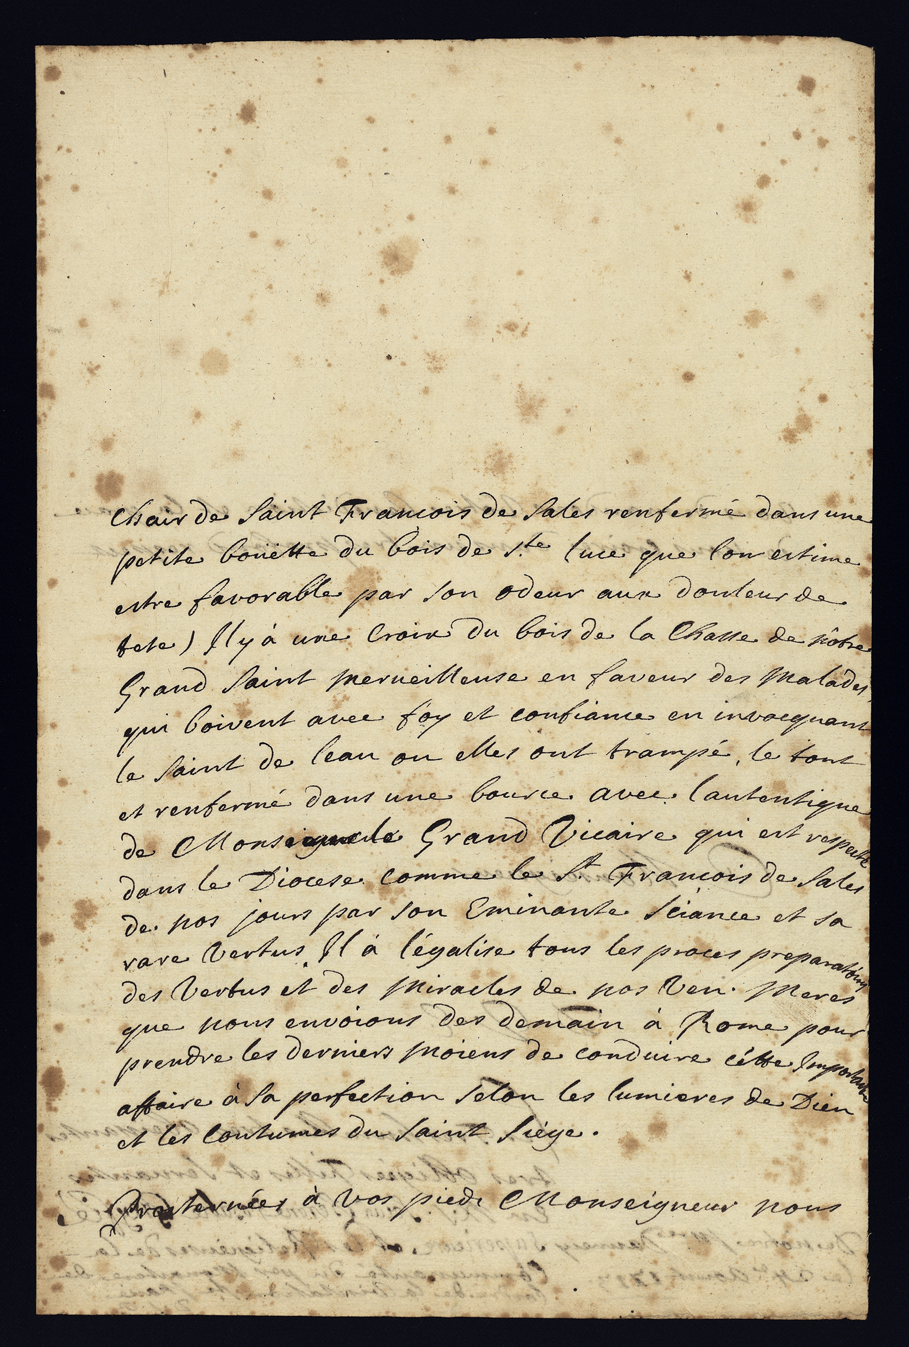 chair de Saint Francois de Sales renfermé dans une
petite bouëtte du bois de s.te luce que lon estime
estre favorable par son odeur aux douleur de
tete) Il y à une Croix du bois de la Chasse de nôtre
Grand Saint merveilleuse en faveur des malades
qui boivent avec foy et confiance en invocquant
le saint de leau ou elles ont trampé, le tout
et renfermé dans une bource avec lautentique
de Monseigneur le Grand Vicaire qui est respecté
dans le Diocese comme le St Francois de Sales
de nos jours par son Eminante siance et sa
rare Vertus. Il à légalise tous les proces preparatoires
des Vertus et des Miracles de nos Ven. Meres
que nous envoions des demain à Rome pour
prendre les derniers moiens de conduire cétte Importante
affaire à sa perfection selon les lumieres de Dieu
et les Coutumes du Saint Siége.
Prosternées à vos pieds Monseigneur nous